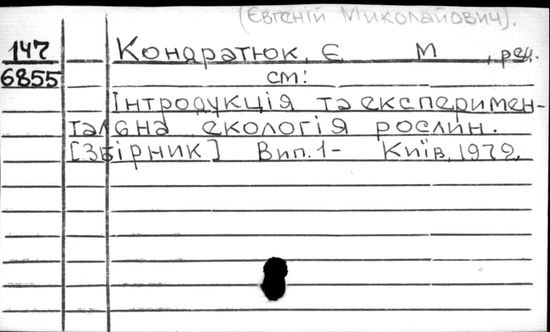 (Євгеній Миколайович).
147 Кондратюк, Є М , ред.
6855 см:
Інтродукція та експеримен-
тальна екологія рослин.
[Збірник] Вип. 1- Київ, 1972.